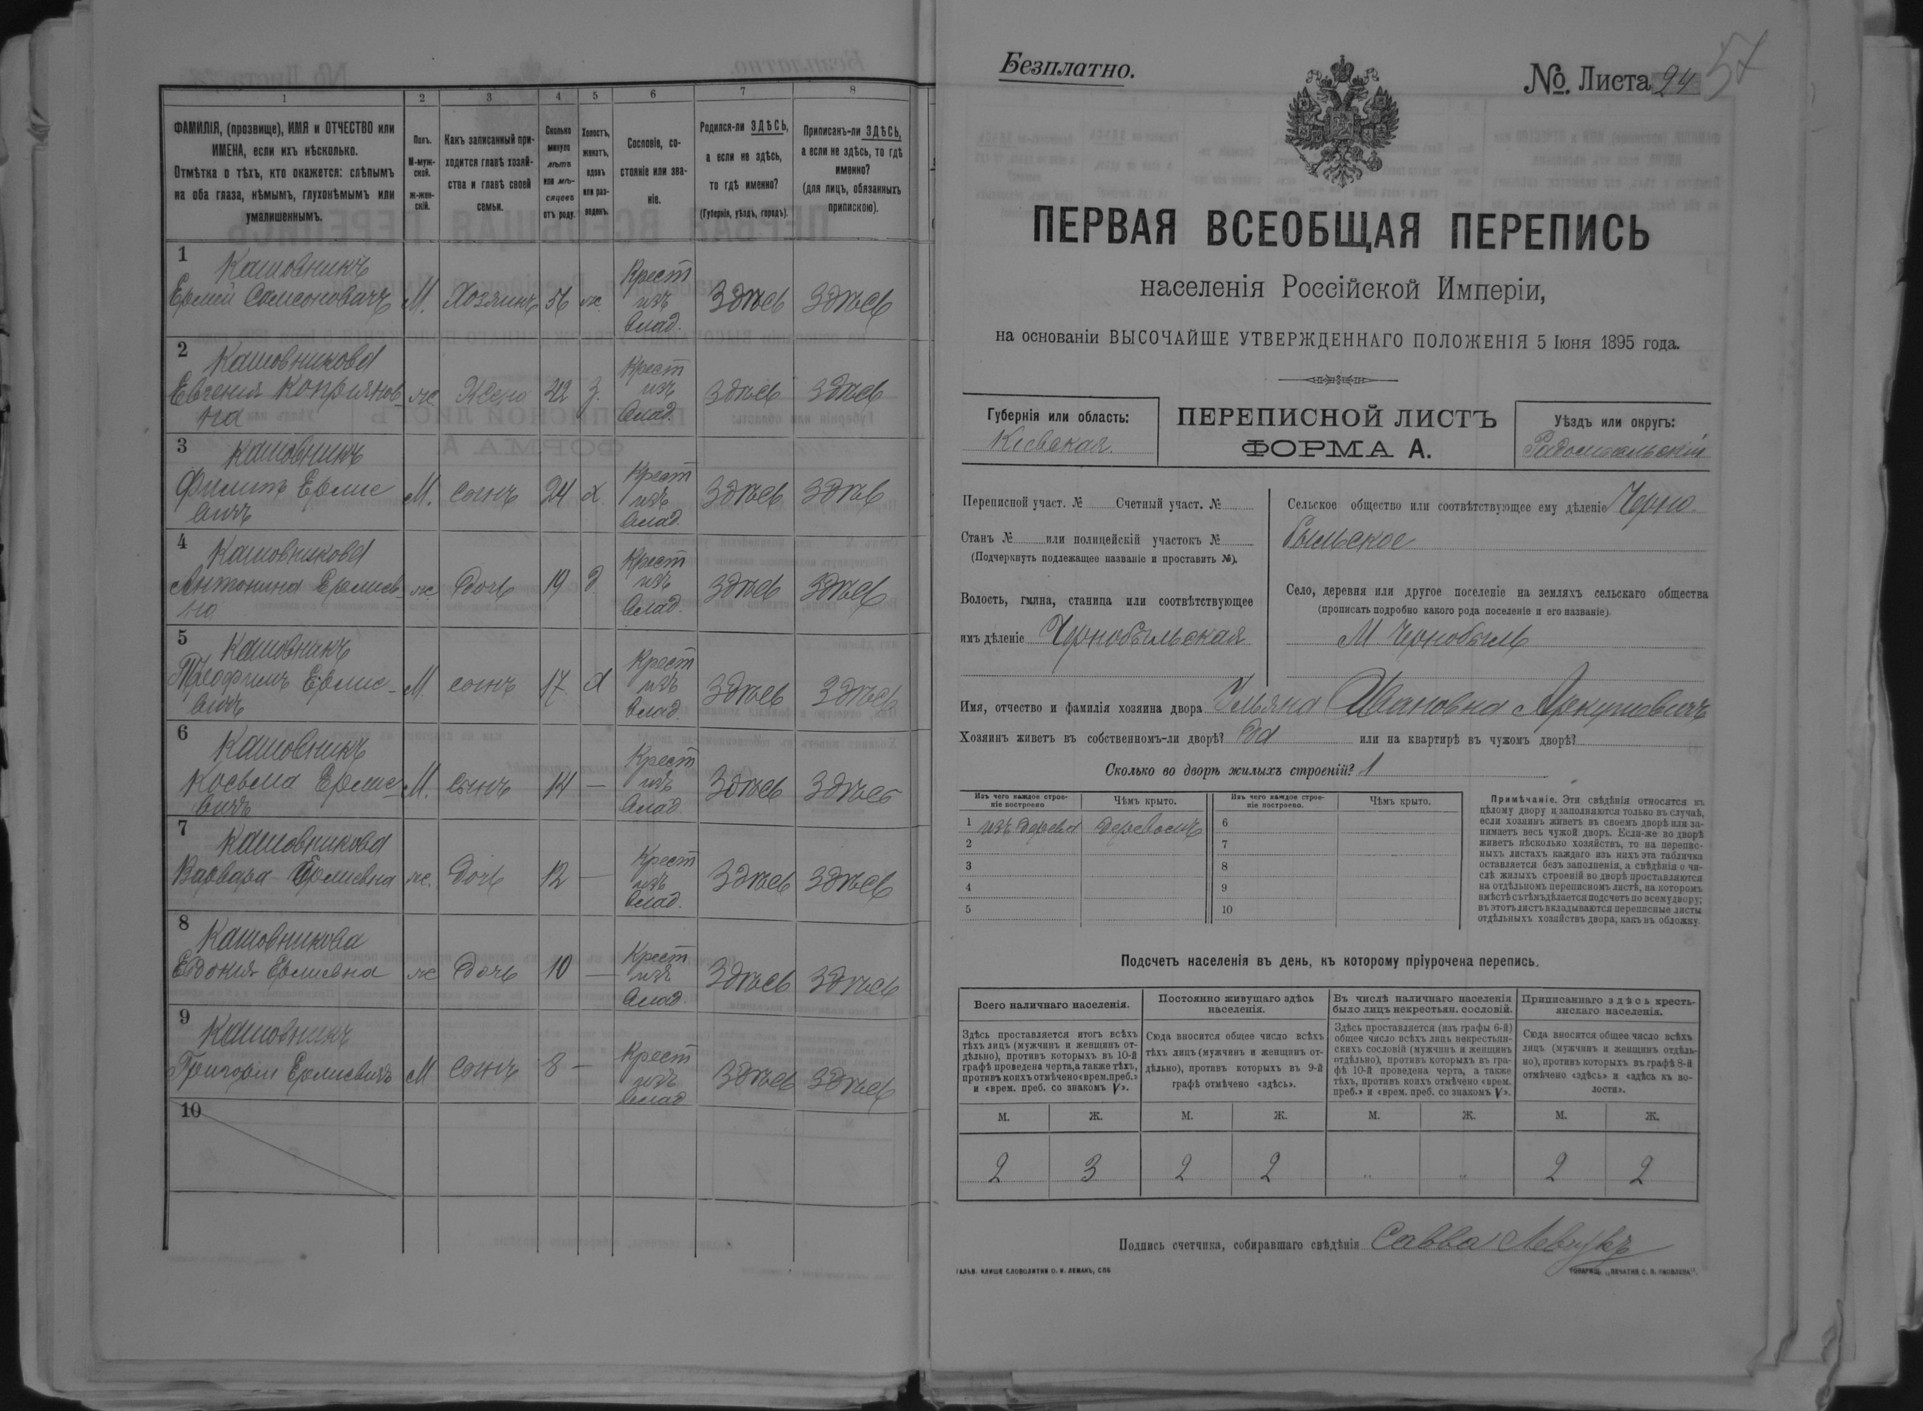 1 2 3 4 5 6 7 8
ФАМИЛІЯ, (прозвище), ИМЯ и ОТЧЕСТВО или
ИМЕНА, если ихъ нѣсколько.
Отмѣтка о тѣхъ, кто окажется: слѣпымъ
на оба глаза, нѣмымъ, глухонѣмымъ или
умалишеннымъ.
Полъ.
М-муж-
ской.
ж-жен-
скій.
Какъ записанный при-
ходится главѣ хозяй-
ства и главѣ своей
семьи.
Сколько
минуло
лѣтъ
или мѣ-
сяцевъ
отъ роду.
Холостъ,
женатъ,
вдовъ
или раз-
веденъ.
Сословіе, со-
стояніе или зва-
ніе.
Родился-ли ЗДѢСЬ,
а если не здѣсь,
то гдѣ именно?
(Губернія, уѣздъ, городъ).
Приписанъ-ли ЗДѢСЬ,
а если не здѣсь, то гдѣ
именно?
(для лицъ, обязанныхъ
припискою).
1 Кашовникъ
Ермей Самсоновичъ М. Хозяинъ 56 ж. Крест изъ влад. Здѣсь Здѣсь
2 Кашовникова
Евгенія Коприянов-
на ж Жена 42 з. Крест изъ влад. Здѣсь Здѣсь
3 Кашовникъ
Филипъ Ермие
вичъ М. сынъ 24 х. Крест изъ влад. Здѣсь Здѣсь
4 Кашовникова
Антонина Ермиев
на ж Дочь 19 д Крест изъ влад. Здѣсь Здѣсь
5 Кашовникъ
Теофимъ Ермие-
вичъ М. сынъ 17 х Крест изъ влад. Здѣсь Здѣсь
6 Кашовникъ
Косьма Ермие-
вичъ М. сынъ 14 — Крест изъ влад. Здѣсь Здѣсь
7 Кашовникова
Варвара Ермиевна ж. Дочь 12 — Крест изъ влад. Здѣсь Здѣсь
8 Кашовникова
Евдокия Ермиевна ж Дочь 10 — Крест изъ влад. Здѣсь Здѣсь
9 Кашовникъ
Григорій Ермиевичъ М сынъ 8 — Крест изъ влад Здѣсь Здѣсь
10
Безплатно.
№. Листа 24 57
ПЕРВАЯ ВСЕОБЩАЯ ПЕРЕПИСЬ
населенія Россійской Имперіи,
на основаніи ВЫСОЧАЙШЕ УТВЕРЖДЕННАГО ПОЛОЖЕНІЯ 5 Іюня 1895 года.
Губернія или область:
Кіевская.
ПЕРЕПИСНОЙ ЛИСТЪ
ФОРМА А.
Уѣздъ или округъ:
Радомысльскій
Переписной участ. № Счетный участ. №
Станъ № или полицейскій участокъ №
(Подчеркнуть подлежащее названіе и проставить №).
Волость, гмина, станица или соотвѣтствующее
имъ дѣленіе Чернобыльская
Сельское общество или соотвѣтствующее ему дѣленіе Черно-
быльское
Село, деревня или другое поселеніе на земляхъ сельскаго общества
(прописать подробно какого рода поселеніе и его названіе).
М. Чернобыль
Имя, отчество и фамилія хозяина двора Ульяна Ивановна Яркушевичъ
Хозяинъ живетъ въ собственномъ-ли дворѣ? Да или на квартирѣ въ чужомъ дворѣ?
Сколько во дворѣ жилыхъ строеній? 1
Изъ чего каждое строе-
ніе построено
Чѣмъ крыто.
Изъ чего каждое строе-
ніе построено.
Чѣмъ крыто.
1 изъ дерева деревомъ 6
2 7
3 8
4 9
5 10
Примѣчаніе. Эти свѣдѣнія относятся къ
цѣлому двору и заполняются только въ случаѣ,
если хозяинъ живетъ въ своемъ дворѣ или за-
нимаетъ весь чужой дворъ. Если-же во дворѣ
живетъ нѣсколько хозяйствъ, то на перепис-
ныхъ листахъ каждаго изъ нихъ эта табличка
оставляется безъ заполненія, а свѣдѣнія о чи-
слѣ жилыхъ строеній во дворѣ проставляются
на отдѣльномъ переписномъ листѣ, на которомъ
вмѣстѣ съ тѣмъ дѣлается подсчетъ по всему двору;
въ этотъ листъ вкладываются переписные листы
отдѣльныхъ хозяйствъ двора, какъ въ обложку.
Подсчетъ населенія въ день, къ которому пріурочена перепись.
Всего наличнаго населенія.
Здѣсь проставляется итогъ всѣхъ
тѣхъ лицъ (мужчинъ и женщинъ от-
дѣльно), противъ которыхъ въ 10-й
графѣ проведена черта, а также тѣхъ,
противъ коихъ отмѣчено «врем. преб.»
и «врем. преб. со знакомъ V».
Постоянно живущаго здѣсь
населенія.
Сюда вносится общее число всѣхъ
тѣхъ лицъ (мужчинъ и женщинъ от-
дѣльно), противъ которыхъ въ 9-й
графѣ отмѣчено «здѣсь».
Въ числѣ наличнаго населенія
было лицъ некрестьян. сословій.
Здѣсь проставляется (изъ графы 6-й)
общее число всѣхъ лицъ некрестьян-
скихъ сословій (мужчинъ и женщинъ
отдѣльно), противъ которыхъ въ гра-
фѣ 10-й проведена черта, а также
тѣхъ, противъ коихъ отмѣчено «врем.
преб.» и «врем. преб. со знакомъ V».
Приписаннаго здѣсь кресть-
янскаго населенія.
Сюда вносится общее число всѣхъ
лицъ (мужчинъ и женщинъ отдѣль-
но), противъ которыхъ въ графѣ 8-й
отмѣчено «здѣсь» и «здѣсь къ во-
лости».
М. Ж. М. Ж. М. Ж. М. Ж.
2 3 2 2 " " 2 2
Подпись счетчика, собиравшаго свѣдѣнія Савва Левчукъ
ГАЛЬВ. КЛИШЕ СЛОВОЛИТНИ О. И. ЛЕМАНЪ, СПБ
ТОВАРИЩ. „ПЕЧАТНЯ С. П. ЯКОВЛЕВА".